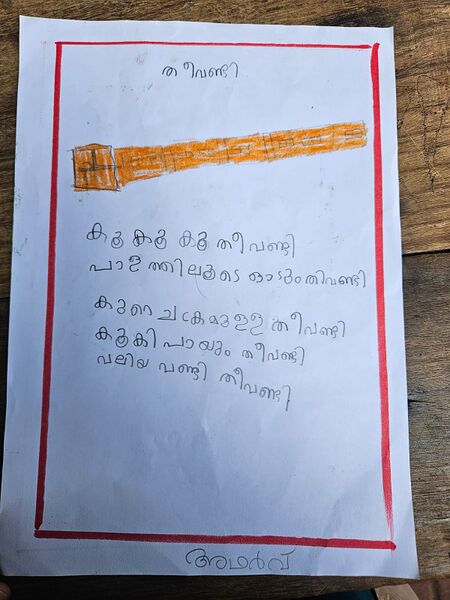 തീവണ്ടി
കൂ കൂ കൂ തീവണ്ടി
പാളത്തിലൂടെ ഓടും തിവണ്ടി
കുറെ ചക്രമുള്ള തീവണ്ടി
കൂകി പായും തീവണ്ടി
വലിയ വണ്ടി തീവണ്ടി
അഥർവ്